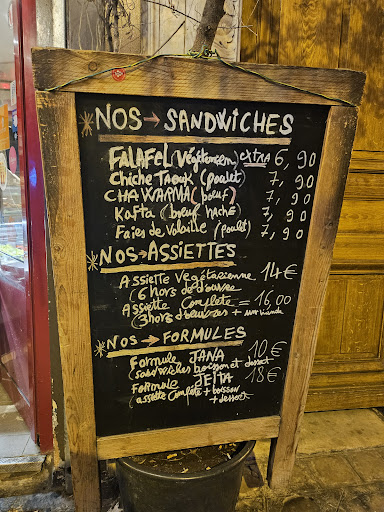 * NOS → SANDWICHES
FALAFEL (Végétarien) extra 6,90
Chiche Taouk (poulet) 7,90
CHAWARMA (bœuf) 7,90
Kafta (bœuf haché) 7,90
Foies de Volaille (poulet) 7,90
* NOS → ASSIETTES
Assiette Végétarienne 14€
(6 hors d'œuvre
Assiette Complète = 16,00
(3 hors d'œuvres + une viande
* NOS → FORMULES
Formule JANA 10€
(sandwiches boisson et dessert
Formule 18€
(assiette Complète + boisson
+ dessert